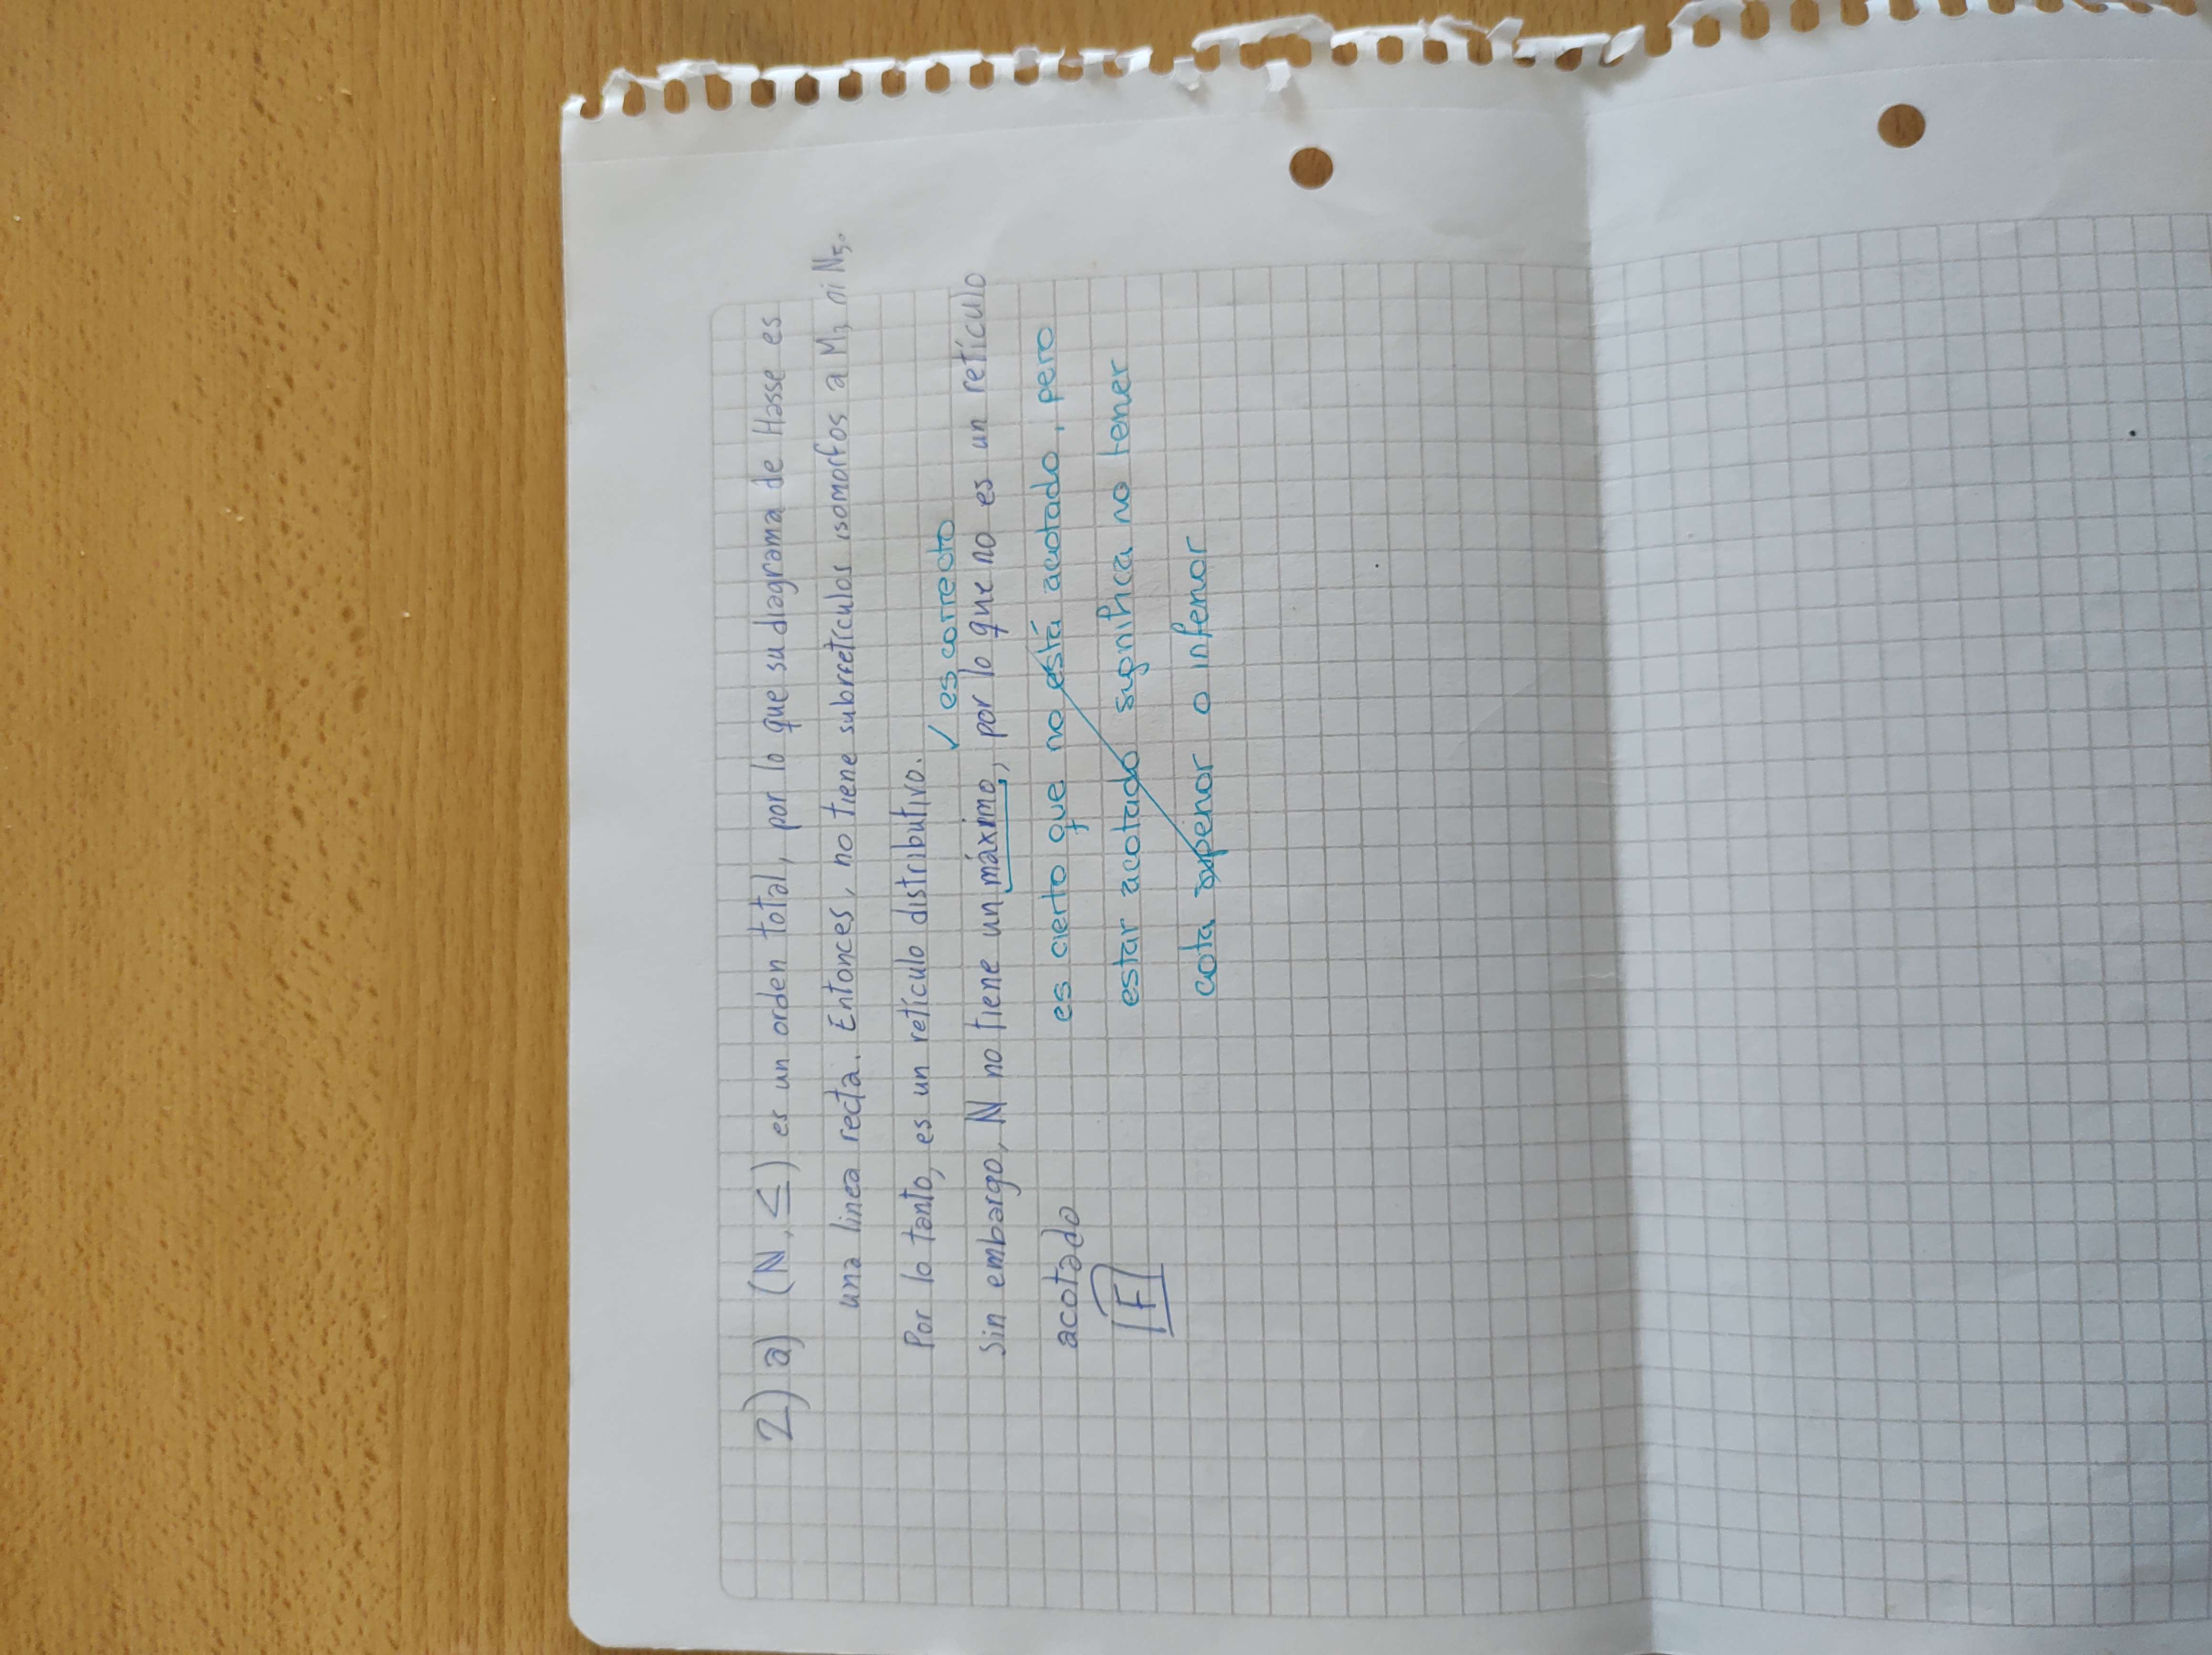 2) a) (ℕ, ≤) es un orden total, por lo que su diagrama de Hasse es
una linea recta. Entonces, no tiene subrretículos isomorfos a M₃ ni N₅.
Por lo tanto, es un retículo distributivo.
✓ es correcto
Sin embargo, ℕ no tiene un máximo, por lo que no es un retículo
acotado
es cierto que no está acotado, pero
estar acotado significa no tener
cota superior o inferior
F